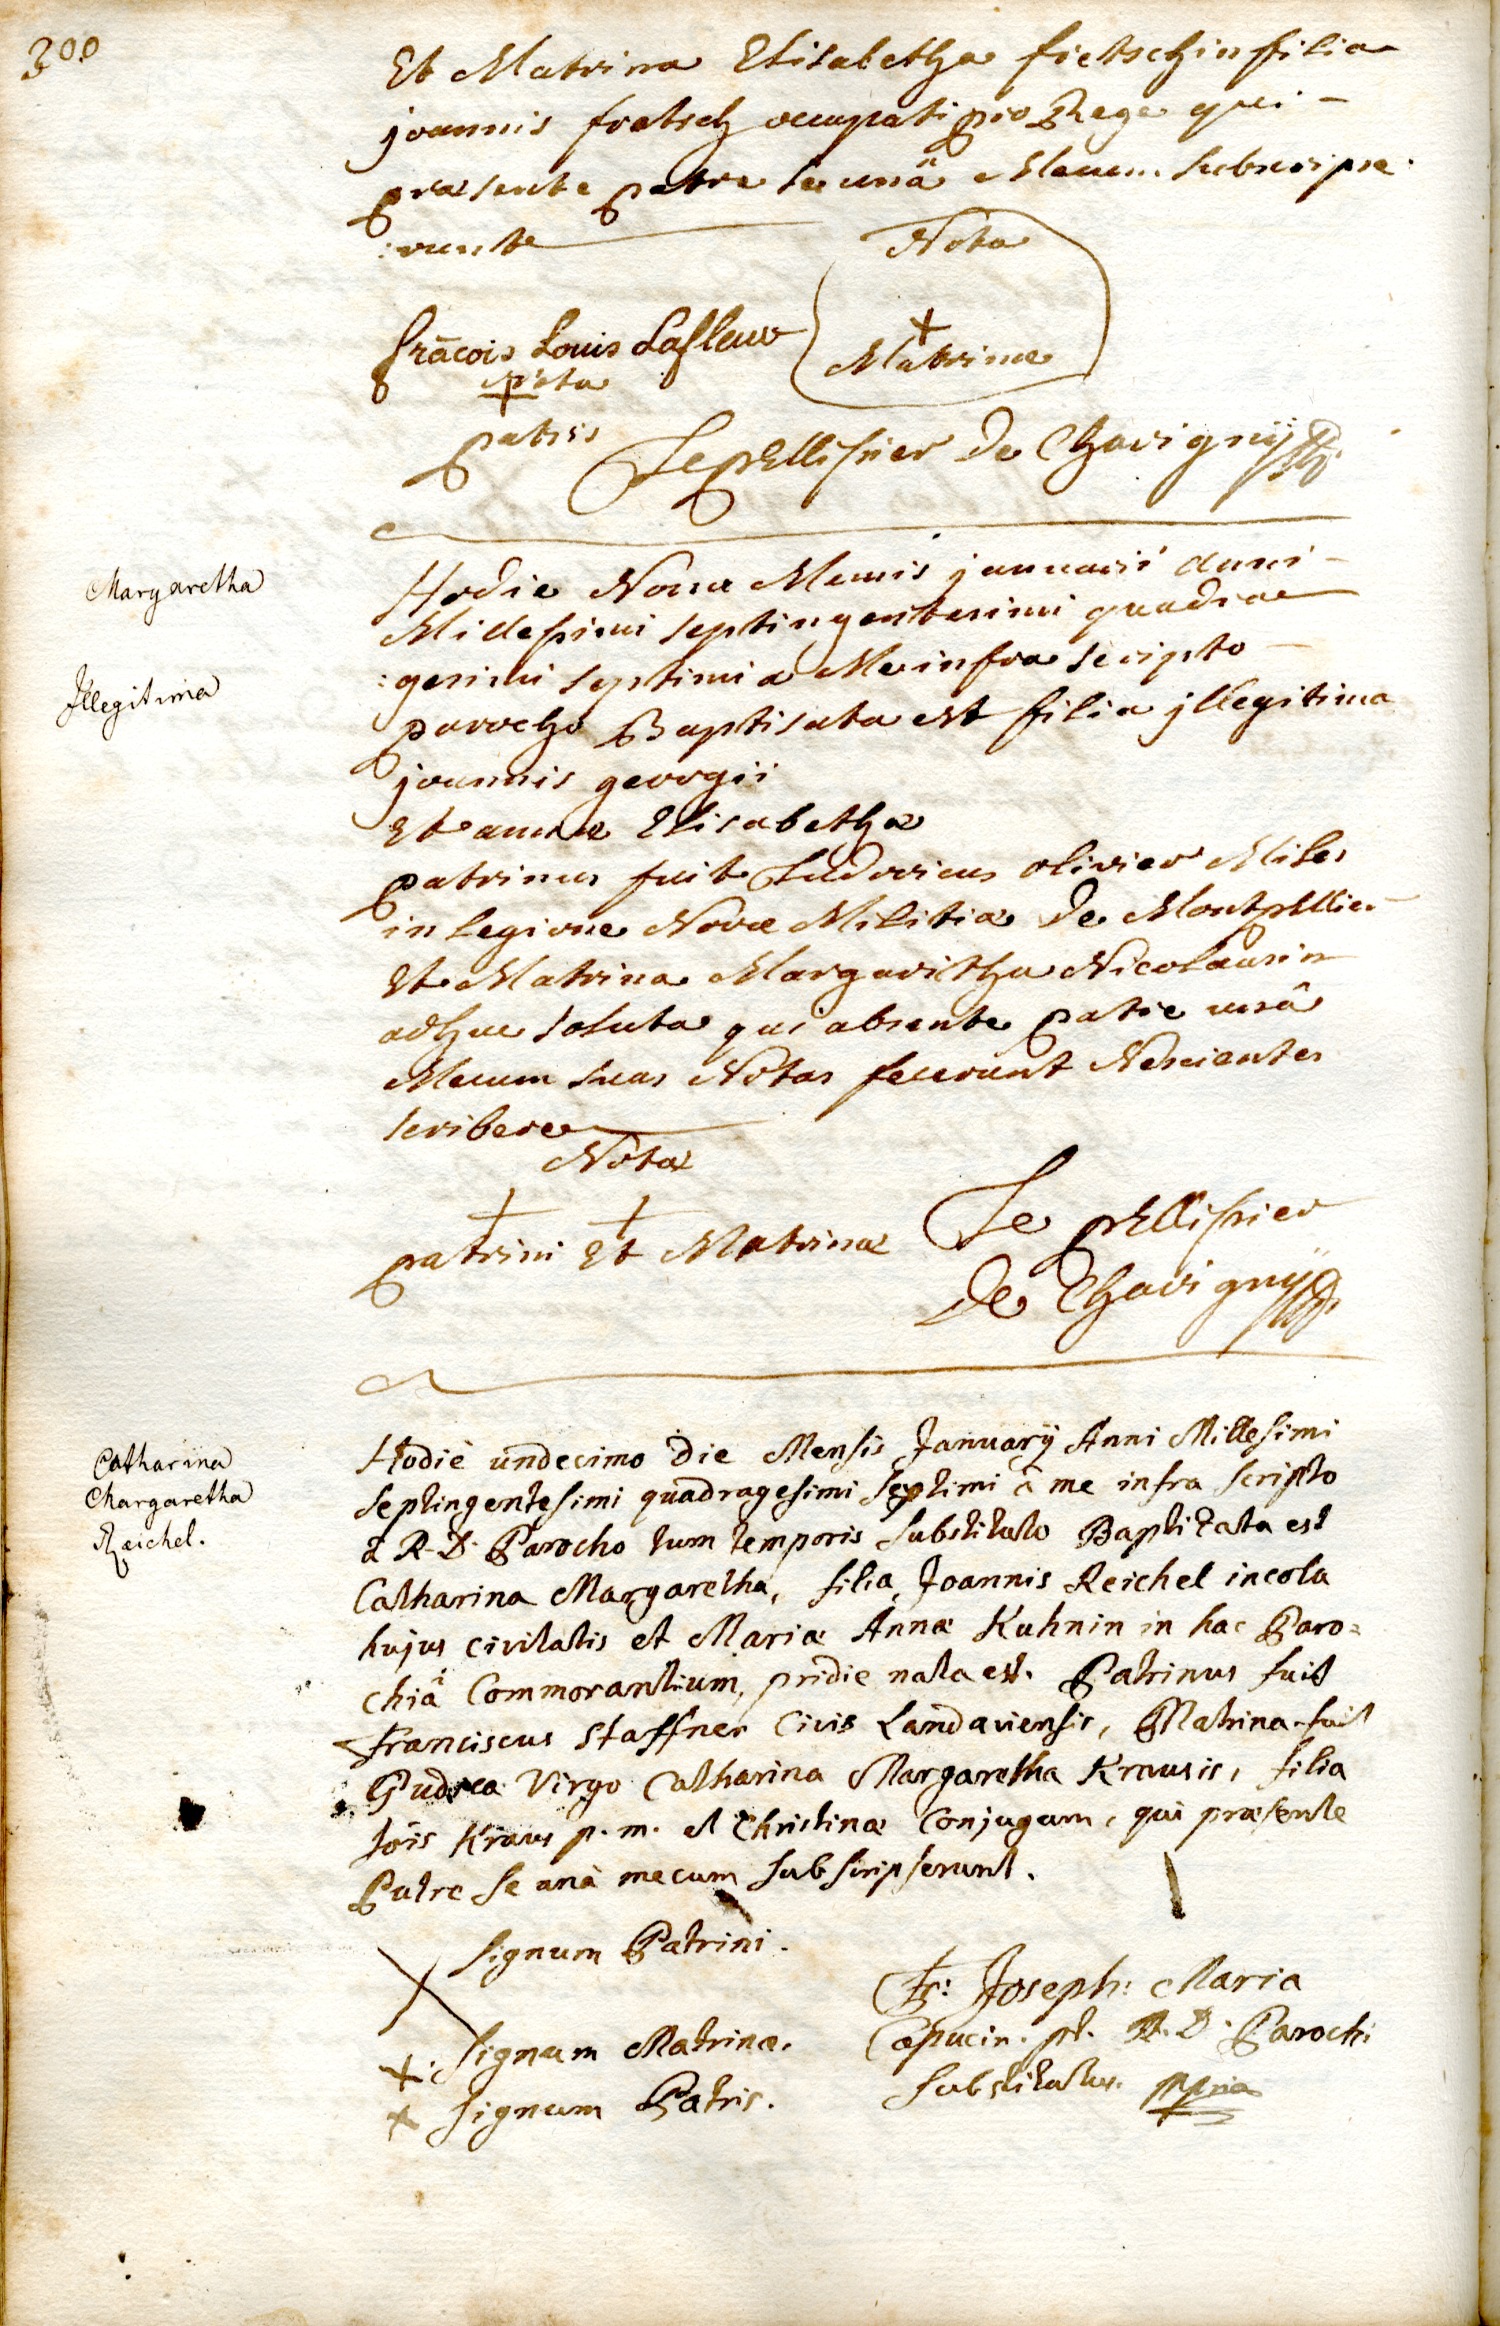 300
Et Matrina Elisabetha fretschin filia
joannis fratsch occupati pro Rege qui –
præsente patre se unâ Mecum subscripse
:runt
Nota
françois Louis Lafleur
†
Matrinæ
Nota
patris
Le pEllissier De Chavignÿ
Margaretha
Illegitima
Hodie Nona Mensis januarii anni –
Millesimi septingentesimi quadra
:gesimi septimi a Me infra scripto –
parocho Baptisata est filia jllegitima
joannis georgii
Et annæ Elisabethæ
patrinus fuit Ludovicus olivier Miles
in legione Novæ Militiæ De Montpellier –
Et Matrina Margaritha Nicolausin
adhuc soluta qui absente patre unâ
Mecum suas Notas fecerunt Nescientes
scribere
Notæ
† †
patrini Et Matrinæ
Le pEllissier
De Chavignÿ
Catharina
Margaretha
Reichel.
Hodie undecimo die Mensis Januarÿ Anni Millesimi
septingentesimi quadragesimi septimi â me infra scripto
a R. D. Parocho tum temporis substituto Baptizata est
Catharina Margaretha, filia Joannis Reichel incola
hujus civitatis et Mariæ Annæ Kuhnin in hac Paro=
chiâ Commorantium, pridie nata est. Patrinus fuit
Franciscus Staffner Civis Landaviensis, Matrina fuit
Pudica Virgo Catharina Margaretha Krausis, filia
Joîs Kraus p. m. et Christinæ Conjugum, qui præsente
Patre se unà mecum subscripserunt.
Signum Patrini.
+. Signum Matrinæ.
+ Signum Patris.
Fr: Joseph: Maria
Capucin. pt. R. D. Parochi
substitutus. mpria